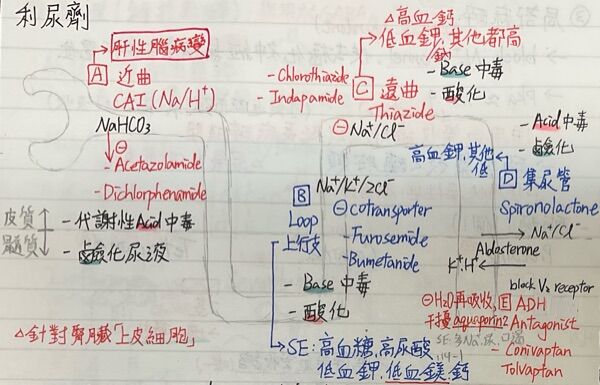 利尿劑
肝性腦病變
A 近曲
CAI (Na/H⁺)
NaHCO₃
⊖
- Acetazolamide
- Dichlorphenamide
皮質
髓質
- 代謝性Acid中毒
- 鹼化尿液
△針對腎臟「上皮細胞」
B Na⁺/K⁺/2Cl⁻
Loop
上行支
⊖cotransporter
- Furosemide
- Bumetanide
- Base中毒
- 酸化
SE: 高血糖,高尿酸
低血鉀,低血鎂,鈣
△高血鈣
低血鉀,其他都高
鈉
- Chlorothiazide
- Indapamide
C 遠曲
Thiazide
- Base中毒
- 酸化
⊖Na⁺/Cl⁻
- Acid中毒
- 鹼化
高血鉀,其他
低
D 集尿管
Spironolactone
Na⁺/Cl⁻
Aldosterone
K⁺,H⁺
block V₂ receptor
⊖H₂O再吸收,
干擾aquaporin2
E ADH
Antagonist
- Conivaptan
Tolvaptan